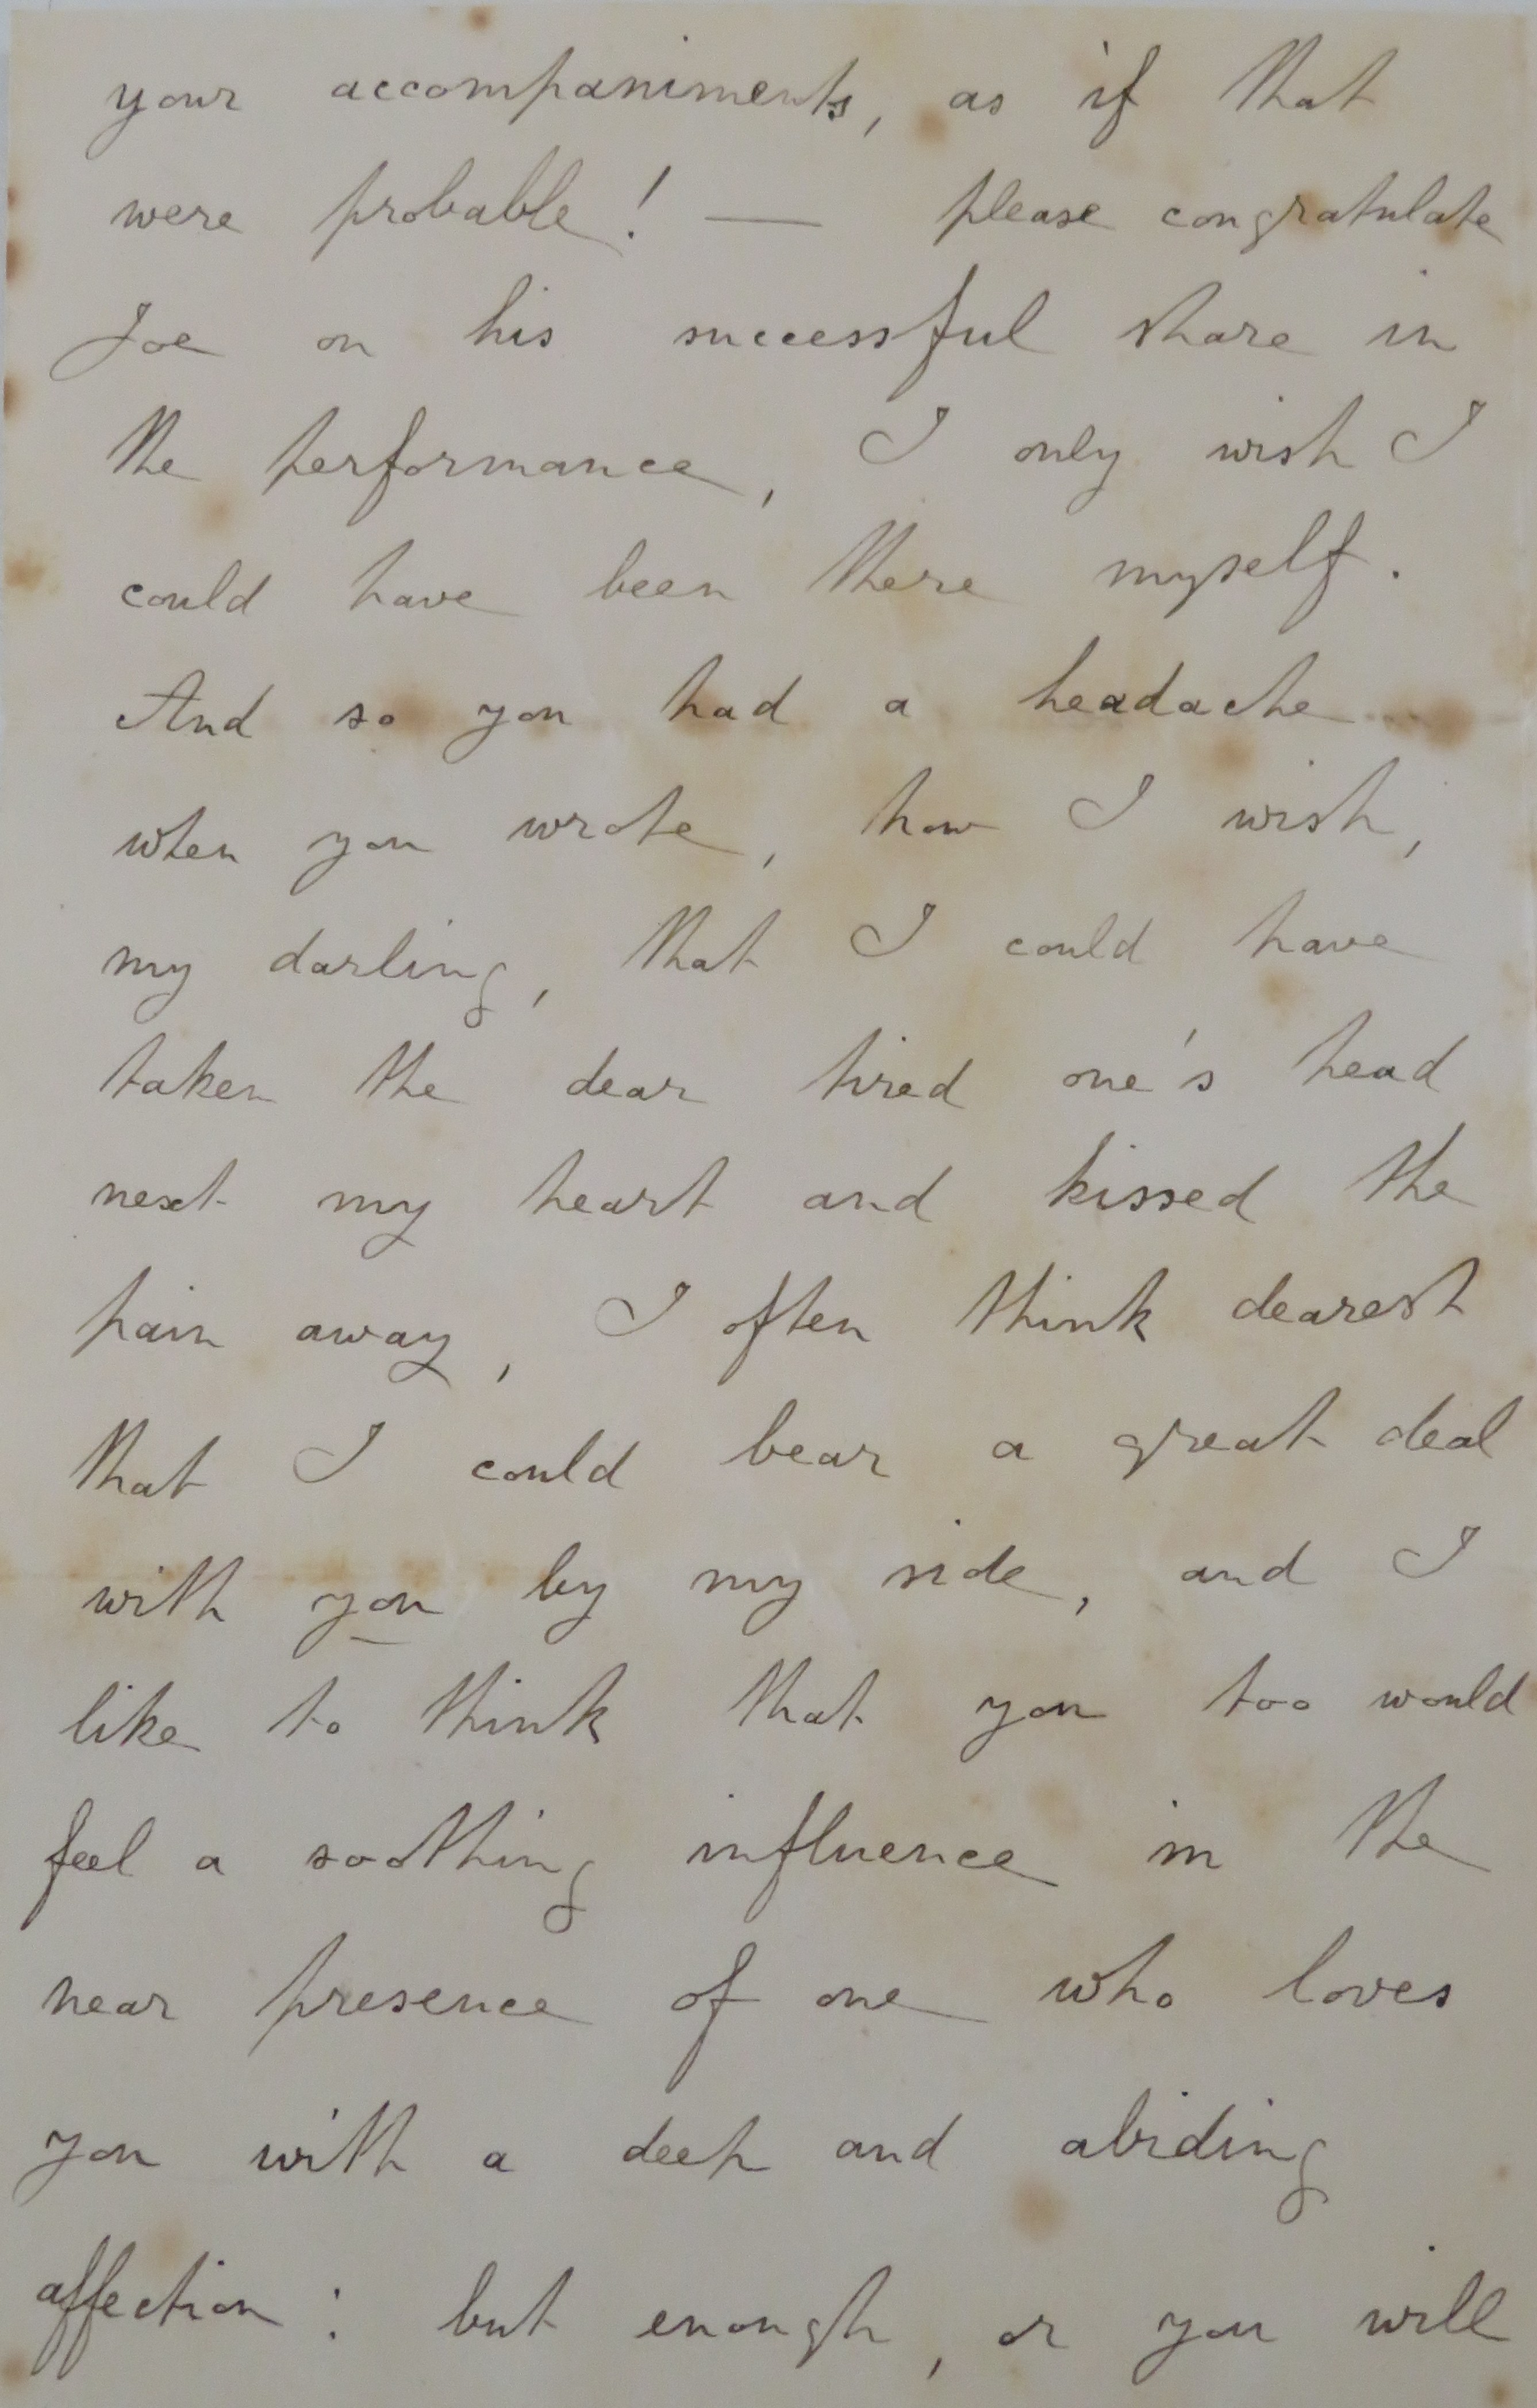 your accompaniments, as if that
were probable! — please congratulate
Joe on his successful share in
the performance, I only wish I
could have been there myself.
And so you had a headache
when you wrote, how I wish,
my darling, that I could have
taken the dear tired one's head
next my heart and kissed the
pain away, I often think dearest
that I could bear a great deal
with you by my side, and I
like to think that you too would
feel a soothing influence in the
near presence of one who loves
you with a deep and abiding
affection: but enough, or you will